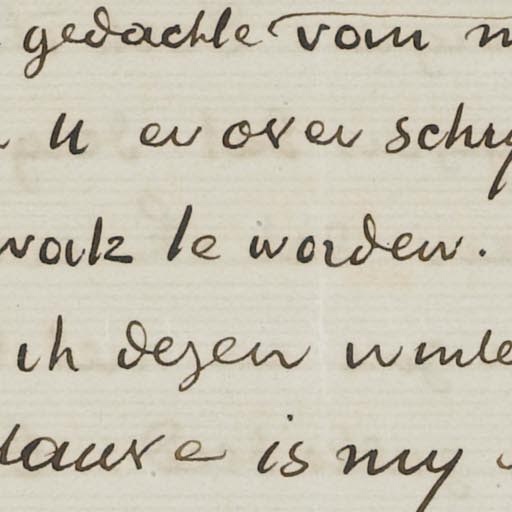 gedachte van m
U er over schry
wak te worden.
ik dezen winte
Mauve is my